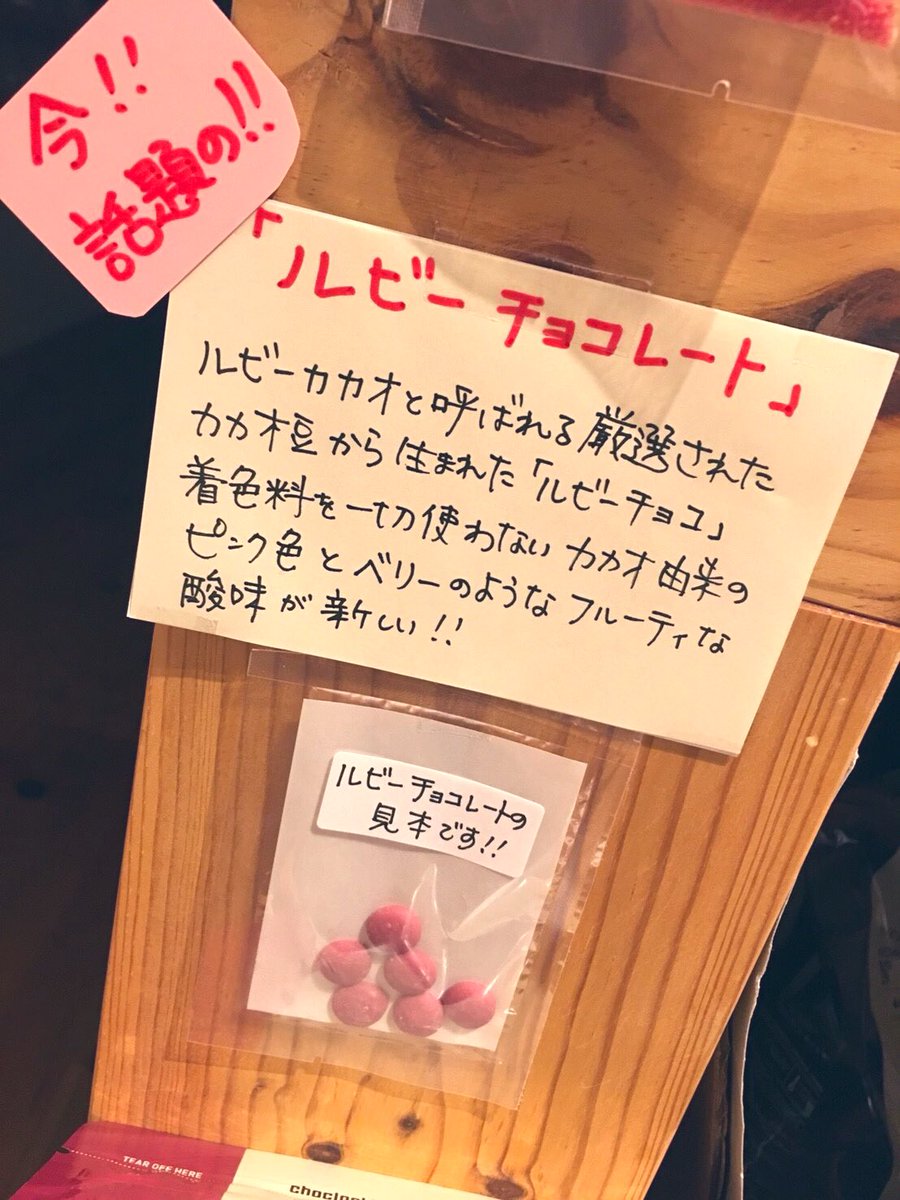 今!!
話題の!!
「ルビーチョコレート」
ルビーカカオと呼ばれる厳選された
カカオ豆から生まれた「ルビーチョコ」
着色料を一切使わないカカオ由来の
ピンク色とベリーのようなフルーティな
酸味が新しい!!
ルビーチョコレートの
見本です!!
TEAR OFF HERE